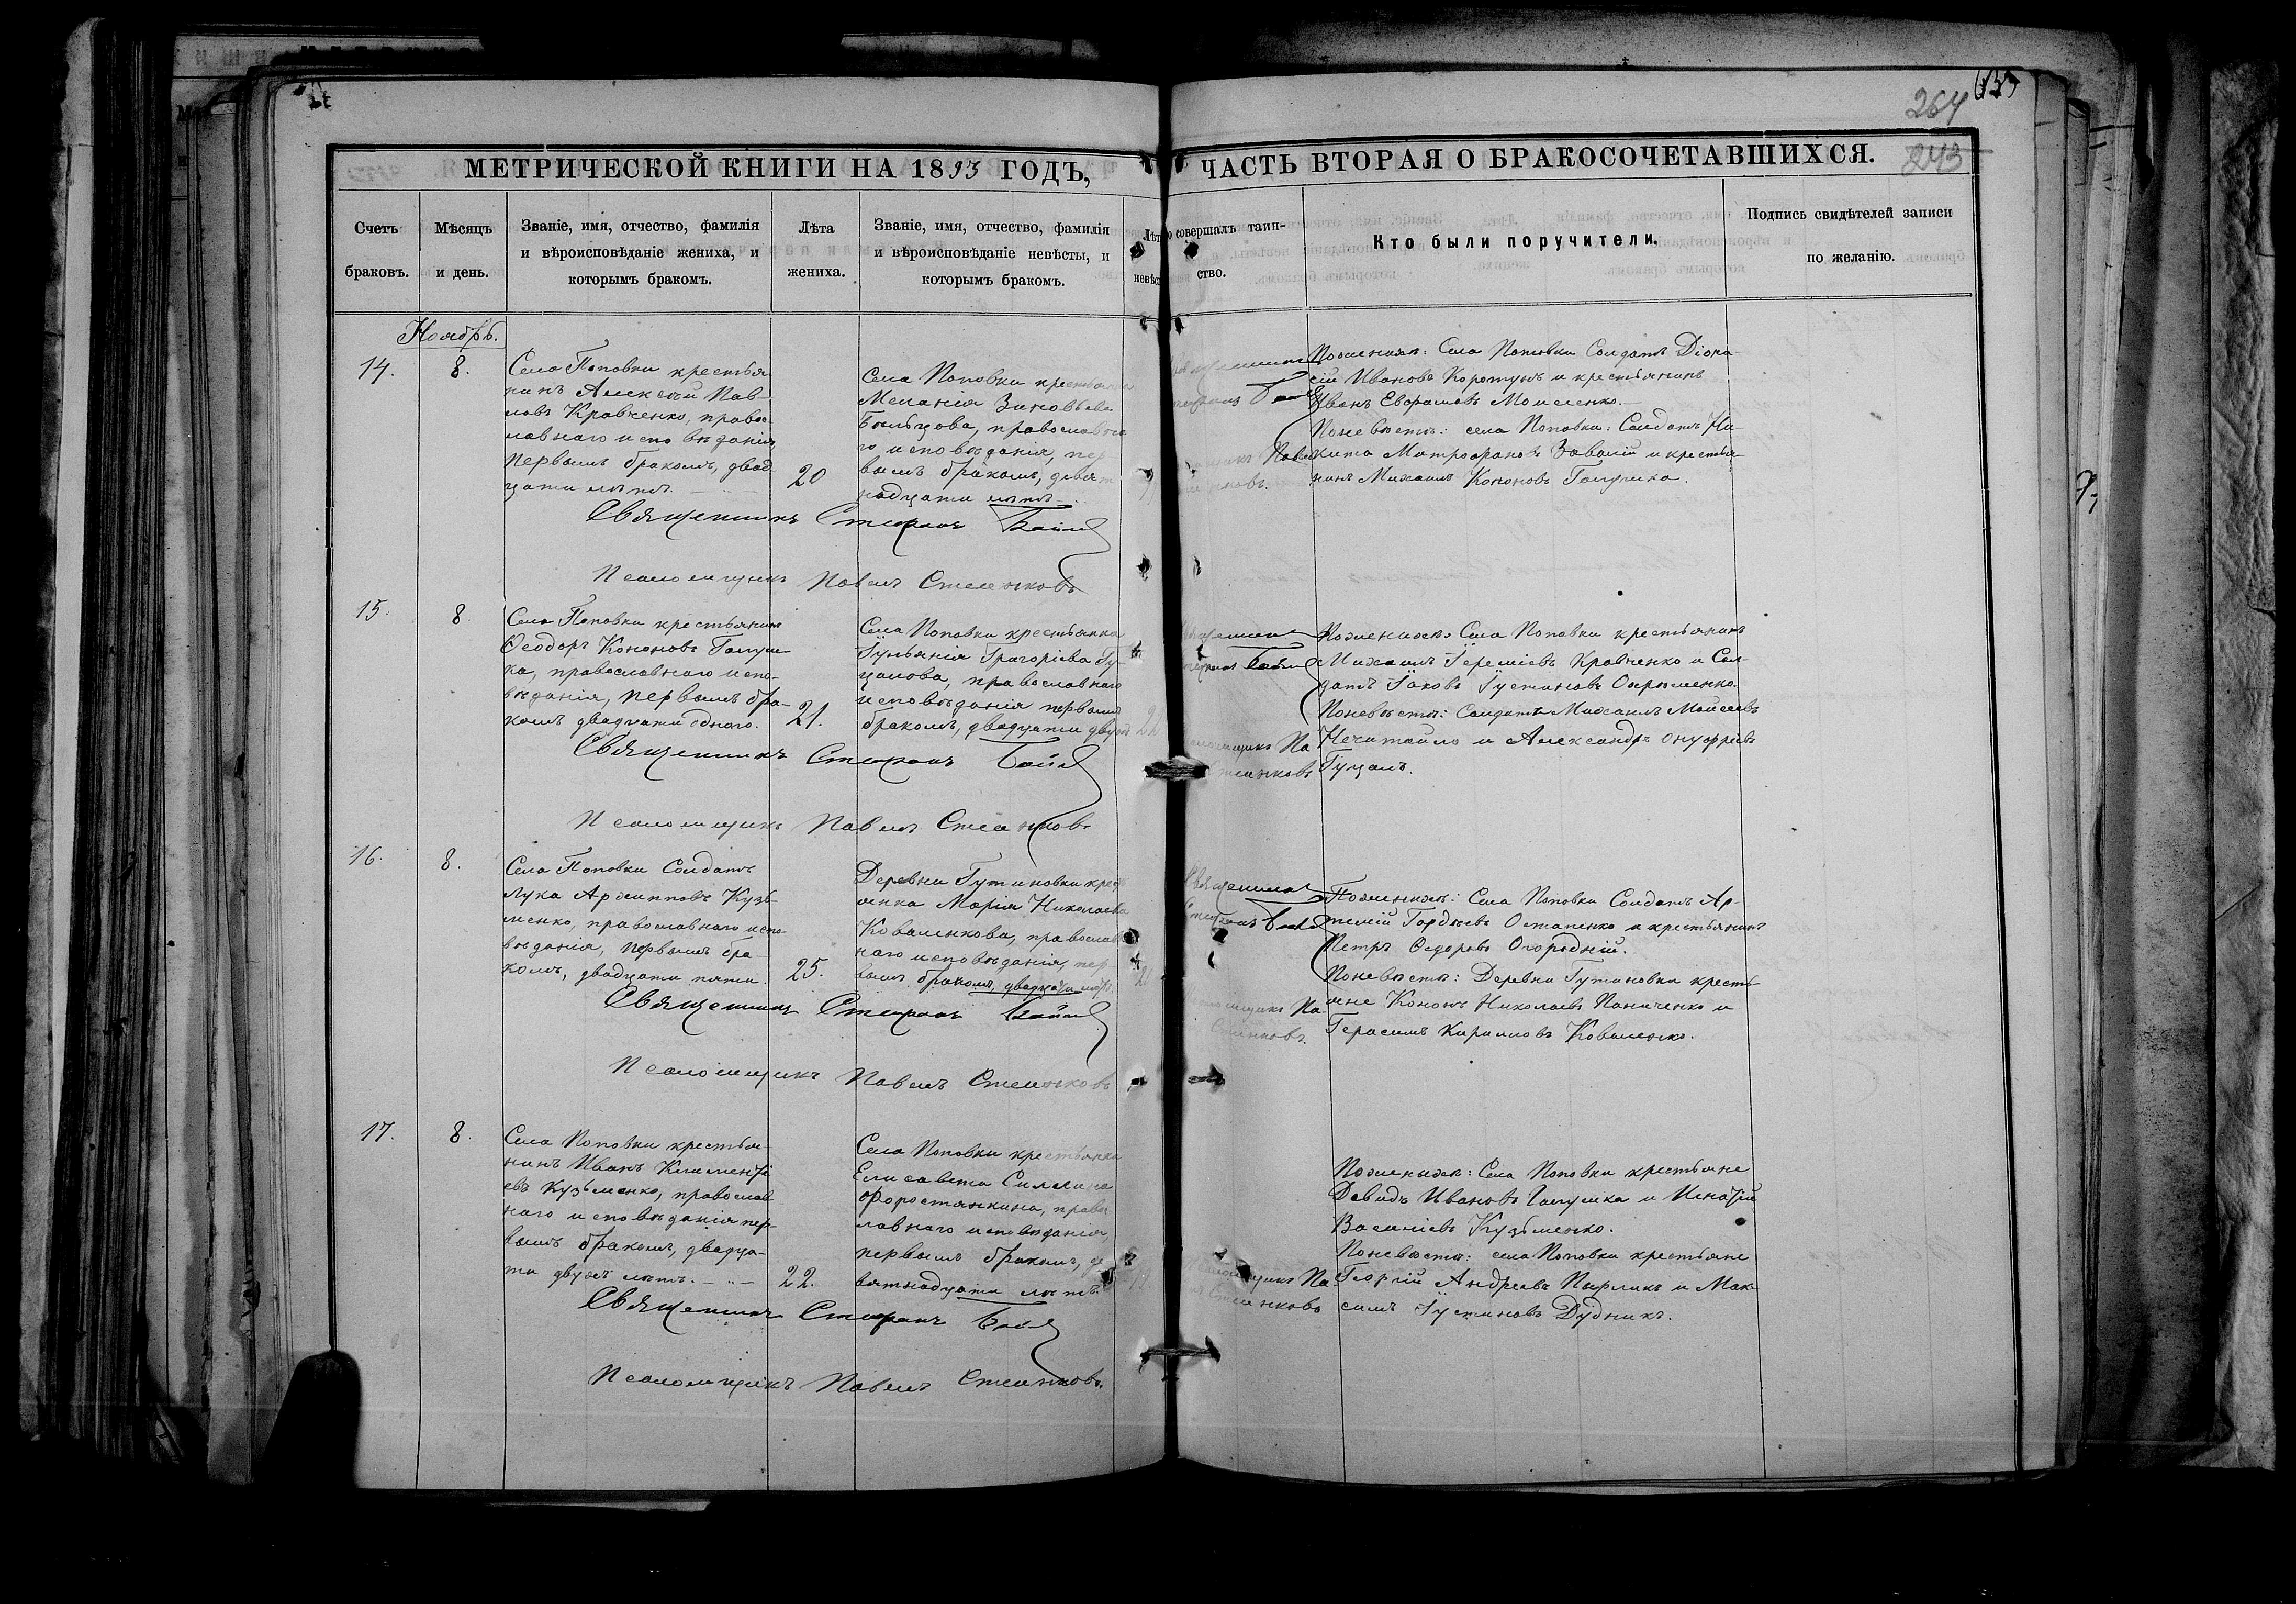 264
243
МЕТРИЧЕСКОЙ КНИГИ НА 1893 ГОДЪ,
ЧАСТЬ ВТОРАЯ О БРАКОСОЧЕТАВШИХСЯ.
Счетъ
браковъ.
Мѣсяцъ
и день.
Званіе, имя, отчество, фамилія
и вѣроисповѣданіе жениха, и
которымъ бракомъ.
Лѣта
жениха.
Званіе, имя, отчество, фамилія
и вѣроисповѣданіе невѣсты, и
которымъ бракомъ.
совершалъ таин-
ство.
Кто были поручители.
Подпись свидѣтелей записи
по желанію.
Ноябрь.
14.
8.
Села Поповки крестья
нинъ Алексѣй Пав-
ловъ Кравченко, право-
славнаго исповѣданія,
первымъ бракомъ, двад
цати лѣтъ.
20
Села Поповки
Меланія Зиновьева
православна
го исповѣданія,
вымъ бракомъ,
надцати лѣтъ
Священникъ Стефанъ
Псаломщикъ Павелъ
Поженихѣ: Села Поповки Солдатъ Діони-
сій Ивановъ Коротунъ и крестьянинъ
Иванъ Моисеенко.
Поневѣстѣ: села Поповки: Солдатъ Ни-
кита Митрофановъ и крестья-
нинъ Михаилъ Кононовъ Галушка.
15.
8.
Села Поповки крестьянинъ
Ѳеодоръ Кононовъ Галуш-
ка, православнаго испо-
вѣданія, первымъ бра-
комъ двадцати одного.
21.
Села Поповки крестьянка
Іульянія Григоріева Гу-
цалова, православнаго
исповѣданія первымъ
бракомъ, двадцати двухъ
22
Священникъ Стефанъ
Псаломщикъ Павелъ
Поженихѣ: Села Поповки крестьянинъ
Михаилъ Іереміевъ Кравченко и Сол-
датъ Іаковъ Іустиновъ
Поневѣстѣ: Солдатъ Михаилъ Моисеевъ
Нечитайло и Александръ Онуфріевъ
Гуцалъ.
16.
8.
Села Поповки Солдатъ
Лука Архипповъ Кузь-
менко, православнаго испо-
вѣданія, первымъ бра-
комъ, двадцати пяти.
25.
Деревни Гутиновки
янка Марія Николаева
Коваленкова, православ
наго исповѣданія, пер
вымъ бракомъ, двадцати
Священникъ Стефанъ
Псаломщикъ Павелъ
Поженихѣ: Села Поповки Солдатъ Ар-
темій Гордѣевъ Остапенко и крестьянинъ
Петръ Ѳедоровъ Огородній.
Поневѣстѣ: Деревни Гутиновки кресть-
яне Кононъ Николаевъ Паниченко и
Герасимъ Кириловъ Коваленко.
17.
8.
Села Поповки крестья-
нинъ Иванъ Клименті
евъ Кузьменко, православ
наго исповѣданія пер-
вымъ бракомъ, двадца-
ти двухъ лѣтъ.
22.
Села Поповки крестьянка
Елисавета
Форостянкина, право
славнаго исповѣданія,
первымъ бракомъ, де
вятнадцати лѣтъ.
Священникъ Стефанъ
Псаломщикъ Павелъ
Поженихѣ: Села Поповки крестьяне
Давидъ Ивановъ Галушка и Игнатій
Василіевъ Кузьменко.
Поневѣстѣ: села Поповки крестьяне
Георгій Андреевъ и Мак-
симъ Іустиновъ Дудникъ.